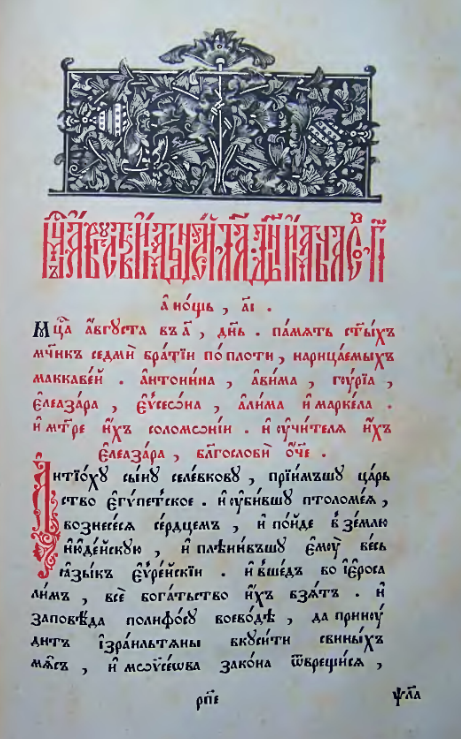 мцⷭ҇а а҆́ѵгуста въ а҃, дн҃ь. памѧть ст҃ыхъ
мч҃нкъ седми́ бра́тїи по пло́ти, нарица́емыхъ
маккаве́й. а҆нтони́на, а҆ви́ма, гꙋ́рїа,
є҆леаза́ра, є҆ѵсево́на, а҆ли́ма и҆ марке́ла.
и҆ мт҃ре и҆́хъ соломѡ́нїи. и҆ ᲂу҆чи́телѧ и҆́хъ
є҆леаза́ра, бл҃гослови́ ѻ҆́ч҃е.
А҆нтїо́ху сы́ну селе́вкову, прїи́мъшу ца́рь
ство є҆гѵ́петское. и҆ ᲂу҆би́вшу птоломе́ѧ,
вознесе́сѧ се́рдцемъ, и҆ по́йде в̾ зе́млю
и҆ю҆де́йскую, и҆ плѣни́въшу є҆мꙋ̀ ве́сь
ꙗ҆зы́къ є҆вре́йскїи. и҆ вше́дъ во і҆еро́са
ли́мъ, всѐ бога́тьство и҆́хъ взѧ́тъ. и҆
запове́да поли́фосу воево́дѣ, да прину́
ди́тъ і҆зра́ильтѧны вкуси́ти свины́хъ
мѧ́съ, и҆ мѡѷсе́ѡва зако́на ѿврещи́сѧ,
рп҃е
ѱⷧ҇а